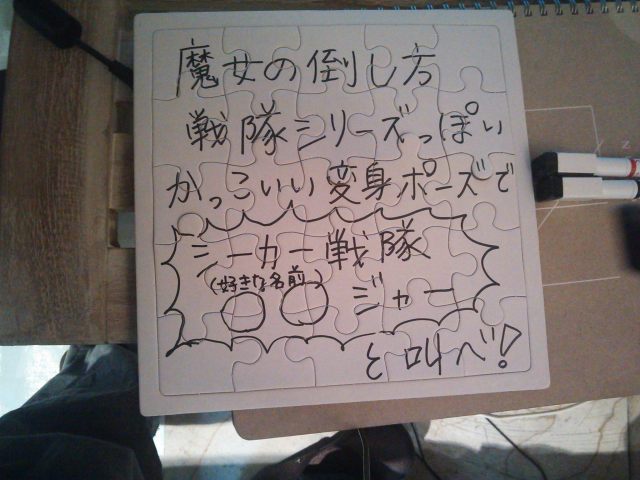 魔女の倒し方
戦隊シリーズっぽい
かっこいい変身ポーズで
シーカー戦隊
(好きな名前)
○○ジャー
と叫べ!